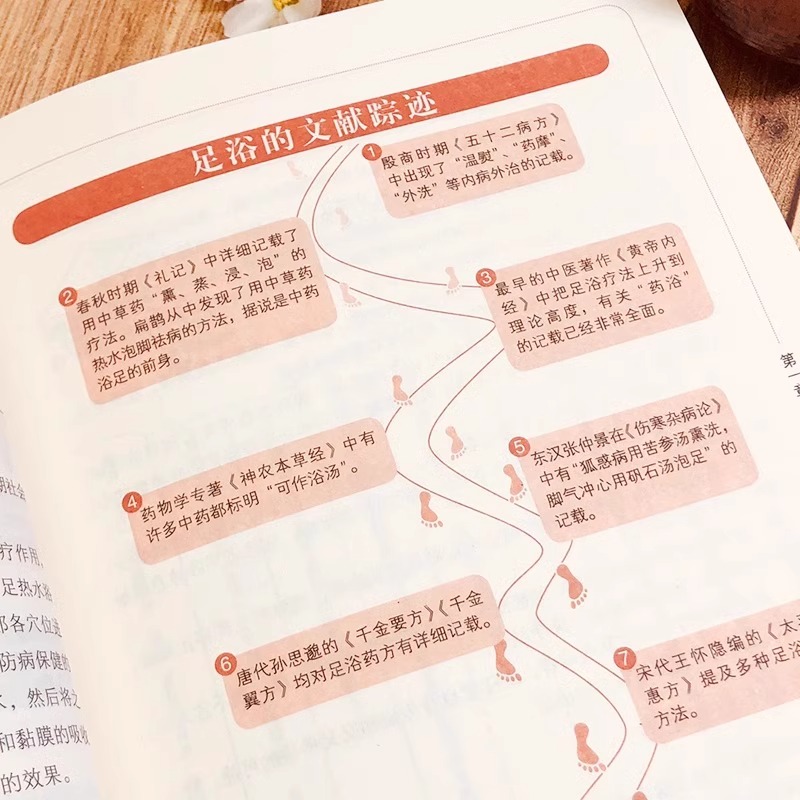 足浴的文献踪迹
1
殷商时期《五十二病方》
中出现了“温熨”、“药摩”、
“外洗”等内病外治的记载。
2
春秋时期《礼记》中详细记载了
用中草药“熏、蒸、浸、泡”的
疗法。扁鹊从中发现了用中草药
热水泡脚祛病的方法，据说是中药
浴足的前身。
3
最早的中医著作《黄帝内
经》中把足浴疗法上升到
理论高度，有关“药浴”
的记载已经非常全面。
4
药物学专著《神农本草经》中有
许多中药都标明“可作浴汤”。
5
东汉张仲景在《伤寒杂病论》
中有“狐惑病用苦参汤熏洗，
脚气冲心用矾石汤泡足”的
记载。
6
唐代孙思邈的《千金要方》《千金
翼方》均对足浴药方有详细记载。
7
宋代王怀隐编的《太
惠方》提及多种足浴
方法。
第一章
期社会
疗作用，
足热水浴
各穴位
防病保健的
，然后将之
和黏膜的吸收
的效果。